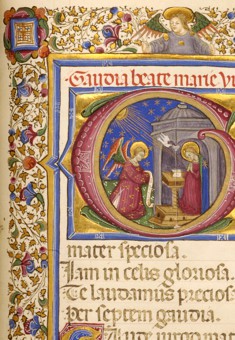 Gaudia beate marie vir
G
mater speciosa.
Iam in celis gloriosa.
Te laudamus precios
per septem gaudia.